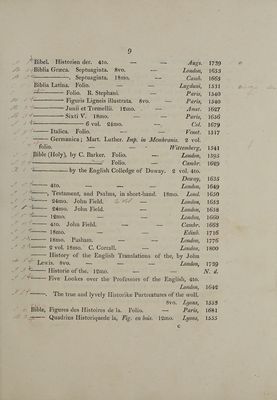 9
Bibel. Historien der. 4to. — — Augs. 1739
Biblia Græca. Septuaginta. 8vo. — London, 1653
———. Septuaginta. 18mo. — Camb. 1665
Biblia Latina. Folio. — — Lugduni, 1531
——— Folio. R. Stephani. — Paris, 1540
——— Figuris Ligneis illustrata. 8vo. — Paris, 1540
——— Junii et Tremellii. 12mo. — Amst. 1627
——— Sixti V. 18mo. — Paris, 1656
——— 6 vol. 24mo. — Col. 1679
——— Italica. Folio. — — Venet. 1517
——— Germanica; Mart. Luther. Imp. in Membranis. 2 vol.
folio. — — — Wittemberg, 1541
Bible (Holy), by C. Barker. Folio. — London, 1595
——— Folio. — Cambr. 1629
——— by the English Colledge of Doway. 2 vol. 4to.
Doway, 1635
——— 4to. — — — London, 1649
———, Testament, and Psalms, in short-hand. 18mo. Lond. 1650
——— 24mo. John Field. — London, 1653
——— 24mo. John Field. — London, 1658
——— 12mo. — — London, 1660
——— 4to. John Field. — Cambr. 1663
——— 18mo. — — Edinb. 1716
——— 18mo. Pasham. — London, 1776
——— 2 vol. 18mo. C. Corrall. — London, 1800
——— History of the English Translations of the, by John
Lewis. 8vo. — — London, 1739
——— Historie of the. 12mo. — — N. d.
——— Five Lookes over the Professors of the English, 4to.
London, 1642
———, The true and lyvely Historike Purtreatures of the woll.
8vo. Lyons, 1553
Bible, Figures des Histoires de la. Folio. — Paris, 1681
——— Quadrins Historiquede la, Fig. en bois. 12mo. Lyons, 1555
C